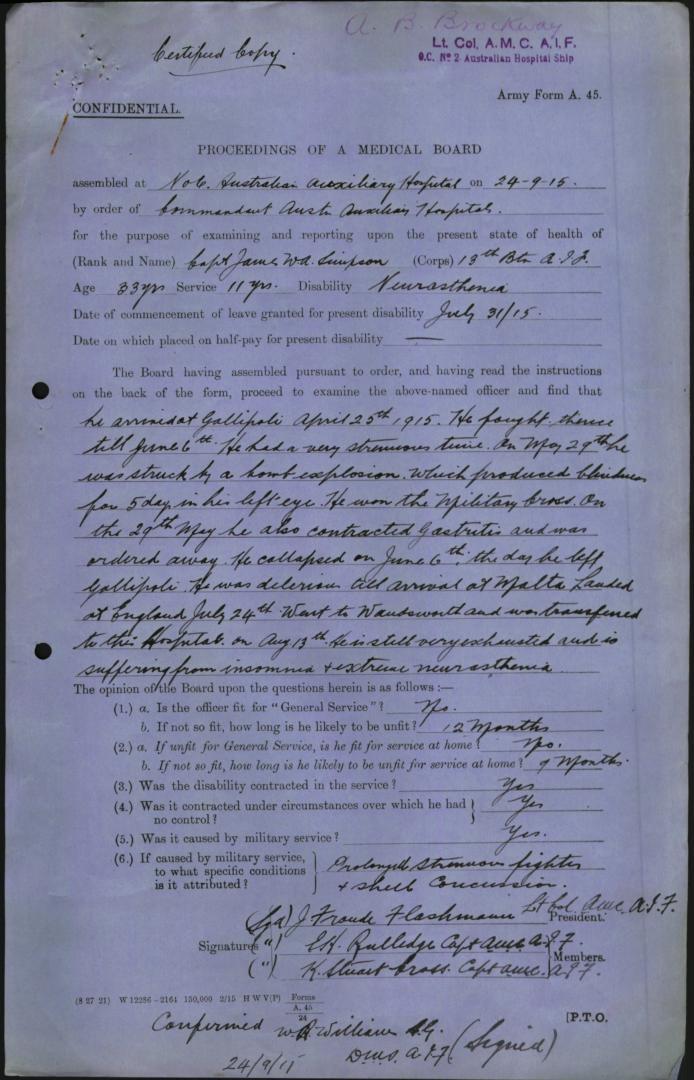 A. B. Brockway
Certified Copy.
Lt. Col. A.M.C. A.I.F.
O.C. No 2 Australian Hospital Ship
Army Form A. 45.
CONFIDENTIAL.
PROCEEDINGS OF A MEDICAL BOARD
assembled at No 6. Australian Auxiliary Hospital on 24-9-15.
by order of Commandant Austn Auxiliary Hospitals.
for the purpose of examining and reporting upon the present state of health of
(Rank and Name) Capt James W.A. Simpson (Corps) 13th Btn A.I.F.
Age 33yrs Service 11 yrs. Disability Neurasthenia
Date of commencement of leave granted for present disability July 31/15.
Date on which placed on half-pay for present disability —
The Board having assembled pursuant to order, and having read the instructions
on the back of the form, proceed to examine the above-named officer and find that
he arrived at Gallipoli April 25th 1915. He fought thence
till June 6th. He had a very strenuous time. On May 29th he
was struck by a bomb explosion. Which produced blindness
for 5 days in his left eye. He won the Military Cross. On
the 29th May he also contracted Gastritis and was
ordered away. He collapsed on June 6th, the day he left
Gallipoli. He was delerious till arrival at Malta. Landed
at England July 24th. Went to Wandsworth and was transferred
to this Hospital. on Aug 13th. He is still very exhausted and is
suffering from insomnia + extreme neurasthenia
The opinion of the Board upon the questions herein is as follows :—
(1.) a. Is the officer fit for "General Service"? No.
b. If not so fit, how long is he likely to be unfit? 12 Months
(2.) a. If unfit for General Service, is he fit for service at home? No.
b. If not so fit, how long is he likely to be unfit for service at home? 9 Months.
(3.) Was the disability contracted in the service? Yes
(4.) Was it contracted under circumstances over which he had no control? Yes
(5.) Was it caused by military service? Yes.
(6.) If caused by military service, to what specific conditions is it attributed? Prolonged strenuous fighting + shell Concussion.
(Sgd) J Froude Flashmann Lt Col. AMC. A.I.F.
President.
Signatures (") C.K. Rutledge Capt AMC. A.I.F.
(") K. Stuart Cross. Capt AMC. A.I.F.
Members.
(8 27 21) W 12286—2164 150,000 2/15 H W V(P) Forms A. 45 24
[P.T.O.
Confirmed W. Williams S.G.
24/9/15 D.M.S. A.I.F. (Signed)